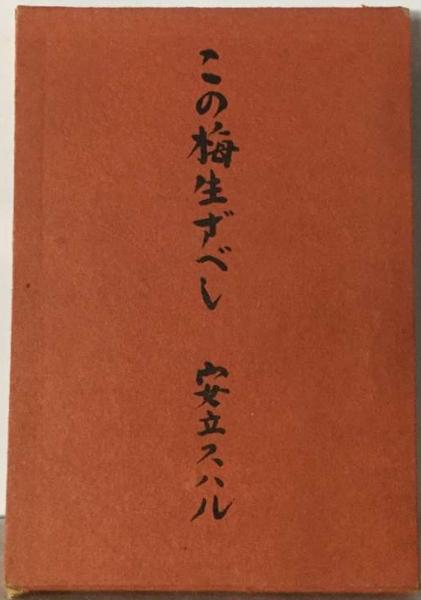 この梅生ずべし 安立スハル